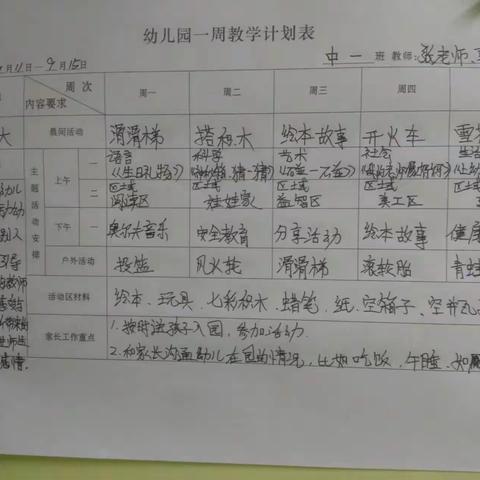 幼儿园一周教学计划表
月11日-9月15日 中一 班 教师:张老师、
周次 周一 周二 周三 周四
内容要求
晨间活动 滑滑梯 搭积木 绘本故事 开火车
主题活动安排 上午 一 语言 科学 艺术 社会
《生日礼物》
二 区域 区域 区域 区域
阅读区 娃娃家 益智区 美工区
下午 一 奥尔夫音乐 安全教育 分享活动 绘本故事 健康
户外活动 投篮 风火轮 滑滑梯 滚轮胎 青蛙
活动区材料 绘本、玩具、七彩积木、蜡笔、纸、空箱子、空
家长工作重点 1.按时送孩子入园,参加活动.
2.和家长沟通幼儿在园的情况,比如吃饭,午睡,如厕